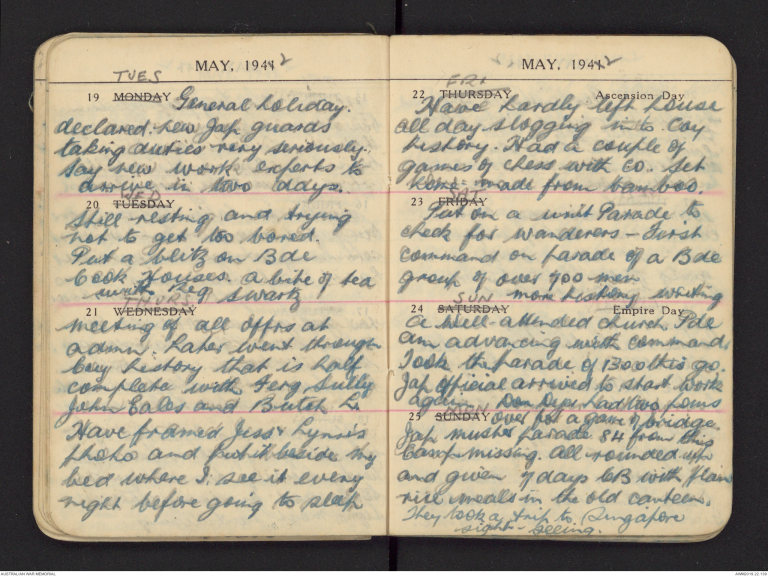 MAY, 1941 2
TUES
19 MONDAY General holiday
declared. New Jap guards
taking duties very seriously.
Say new work experts to
arrive in two days.
WED
20 TUESDAY
Still resting and trying
not to get too bored.
Put a blitz on Bde
Cook Houses. a bite of tea
with Reg Swartz
THURS
21 WEDNESDAY
Meeting of all offrs at
admn. Later went through
Coy history that is half
complete with Ferg, Sully
John Eales and Butch L.
Have framed Jess & Lynn's
photo and put it beside my
bed where I see it every
night before going to sleep
MAY, 1941 2
FRI
22 THURSDAY Ascension Day
Have hardly left house
all day slogging into Coy
history. Had a couple of
games of chess with CO. Set
home-made from bamboo.
SAT
23 FRIDAY
Put on a unit Parade to
check for wanderers – First
command on parade of a Bde
group of over 700 men
more history writing
SUN
24 SATURDAY Empire Day
A well-attended church Pde
Am advancing with command
Took the parade of 1300 this go.
Jap official arrived to start work
again. Don had two
MON
25 SUNDAY over for a game of bridge.
Jap muster parade 84 from this
Camp missing. All rounded up
and given 7 days CB with plain
rice meals in the old canteen.
They took a trip to Singapore
sight-seeing.
AUSTRALIAN WAR MEMORIAL